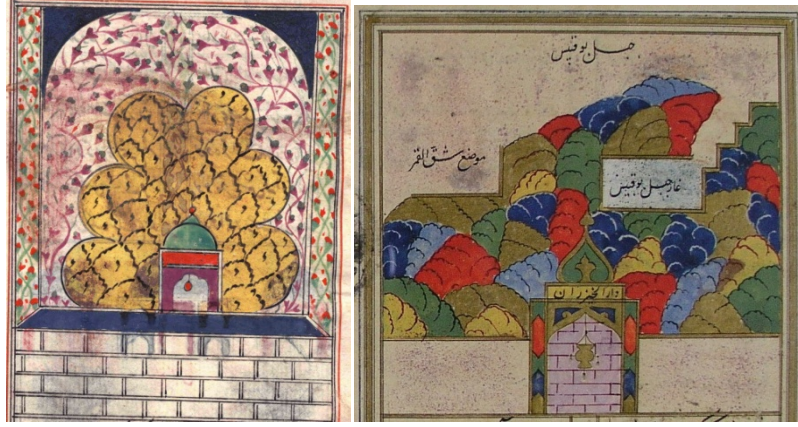 جبل بوقبیس
موضع شق القمر
غار جبل بوقبیس
دار الخیزران